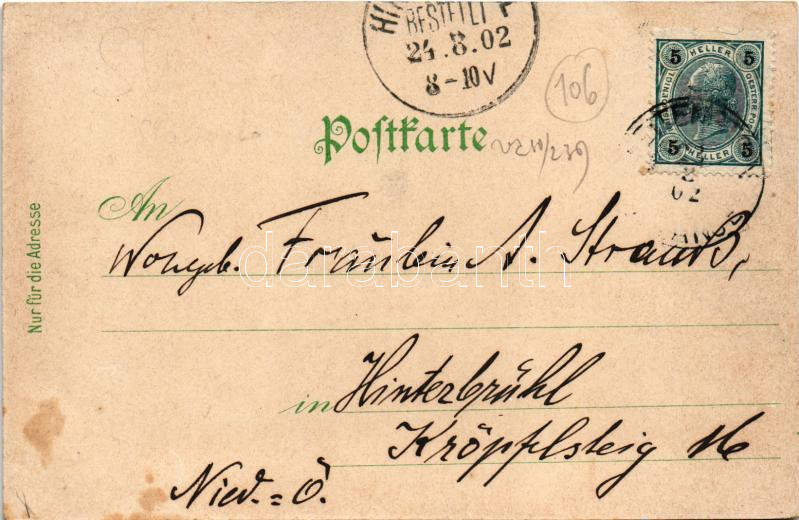 BESTELLT
24.8.02
8-10V
106
5 HELLER 5
5 HELLER 5
Postkarte
An
Wohlgeb. Fräulein A. Strauß,
darabanth
in Hinterbrühl
Kröpfelsteig 16
Nied.=Ö.
Nur für die Adresse